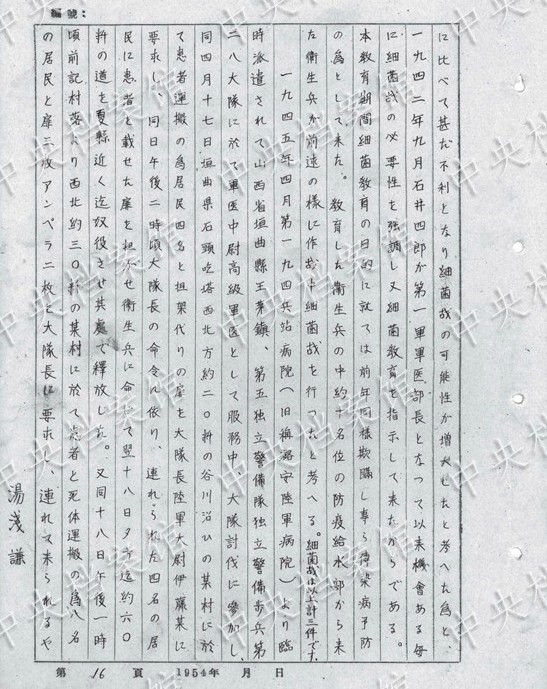 編號:
に比べて甚だ不利となり細菌戦の可能性が増大したと考へた為と、
一九四二年九月石井四郎が第一軍軍医部長となつて以来機會ある毎
に細菌戦の必要性を強調し又細菌教育を指示して来たからである。
本教育期間細菌教育の目的に就ては前年同様欺瞞し専ら傳染病予防
の為として来た。教育した衛生兵の中約十名位の防疫給水部から来
た衛生兵が前述の様に作戦中細菌戦を行つたと考へる。細菌戦は以上計三件です。
一九四五年四月第一九四兵站病院(旧稱潞安陸軍病院)より臨
時派遣されて山西省垣曲縣王茅鎮、第五独立警備隊独立警備歩兵第
二八大隊に於て軍医中尉高級軍医として服務中、大隊討伐に参加し、
同四月十七日垣曲県石頭圪塔西北方約二〇粁の谷川沿ひの某村に於
て患者運搬の為居民四名と担架代りの扉を大隊長陸軍大尉伊藤某に
要求し、同日午後二時頃大隊長の命令に依り、連れられた四名の居
民に患者を載せた扉を担がせ衛生兵に命じて翌十八日夕方迄約六〇
粁の道を夏縣近く迄奴役させ其處で釈放した。又同十八日午後一時
頃前記村落より西北約三〇粁の某村に於て患者と死体運搬の為八名
の居民と扉二枚アンペラ二枚を大隊長に要求し、連れて来られるや
湯浅謙
第 16 頁 1954年 月 日
中央档案馆